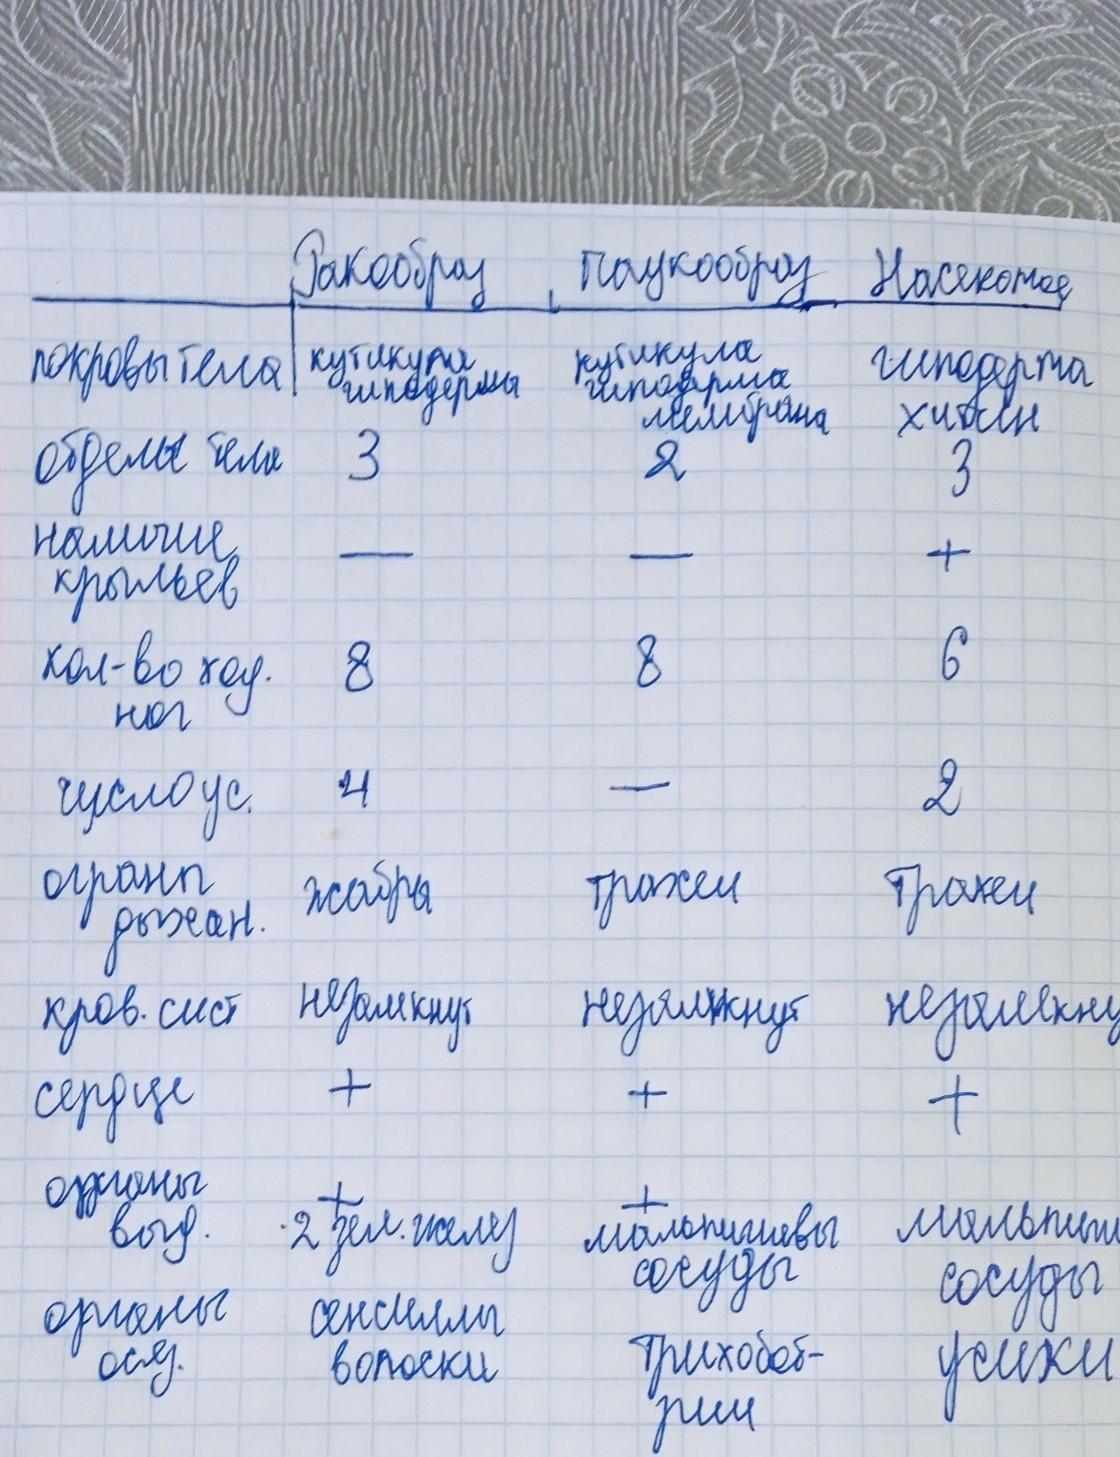 Ракообраз Паукообраз Насекомое
покровы тела кутикула гиподермы кутикула гиподерма мембрана гиподерма хитин
отделы тела 3 2 3
наличие крыльев — — +
кол-во ход. ног 8 8 6
число ус. 4 — 2
органы дыхан. жабры трахеи трахеи
кров. сист незамкнут незамкнут незамкну
сердце + + +
органы выд. + 2 зел. желез + мальпигиевы сосуды мальпиги сосуды
органы осяз. сенсиллы волоски трихобот-рии усики